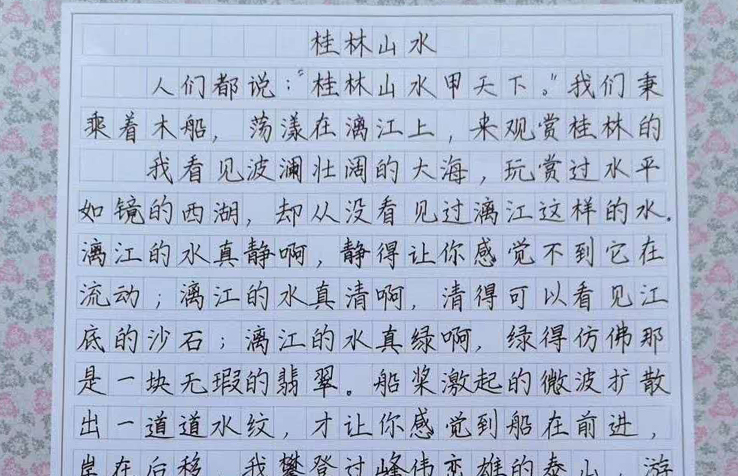 桂林山水
人们都说:“桂林山水甲天下。”我们秉
乘着木船，荡漾在漓江上，来观赏桂林的
我看见波澜壮阔的大海，玩赏过水平
如镜的西湖，却从没看见过漓江这样的水.
漓江的水真静啊，静得让你感觉不到它在
流动；漓江的水真清啊，清得可以看见江
底的沙石；漓江的水真绿啊，绿得仿佛那
是一块无瑕的翡翠。船桨激起的微波扩散
出一道道水纹，才让你感觉到船在前进，
岸在后移。我攀登过峰伟峦雄的泰山，游